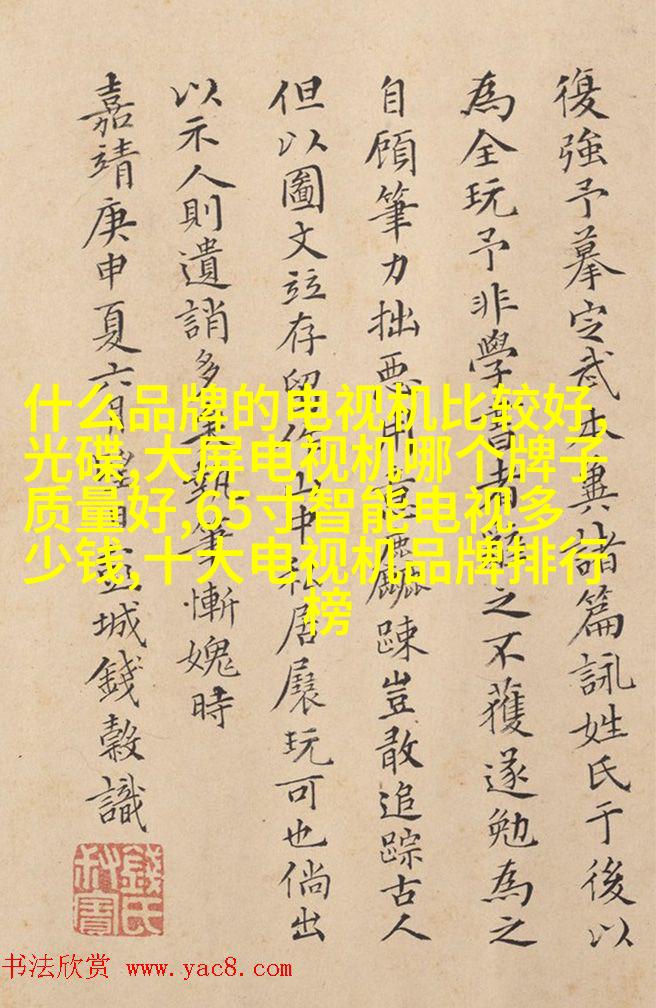 復強予摹定武本兼諸篇詠姓氏于後以
為全玩予非學書者辭之不獲遂勉為之
自顧筆力拙惡用意麤踈豈敢追踪古人
但以圖文竝存留作山中私居展玩可也倘出
以示人則遺誚多矣執筆慚媿時
嘉靖庚申夏六月城錢榖識
錢氏叔寶
什么品牌的电视机比较好,
光碟,大屏电视机哪个牌子
质量好,65寸智能电视多
少钱,十大电视机品牌排行
榜
书法欣赏 www.yac8.com